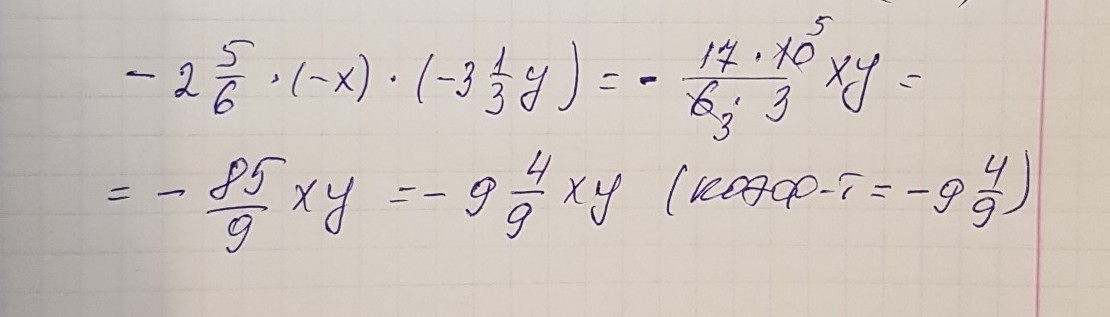 - 2 5/6 · (-x) · (-3 1/3 y) = - 17 · 10 5 / 6 3 · 3 xy =
= - 85/9 xy = - 9 4/9 xy (коэф-т = - 9 4/9)